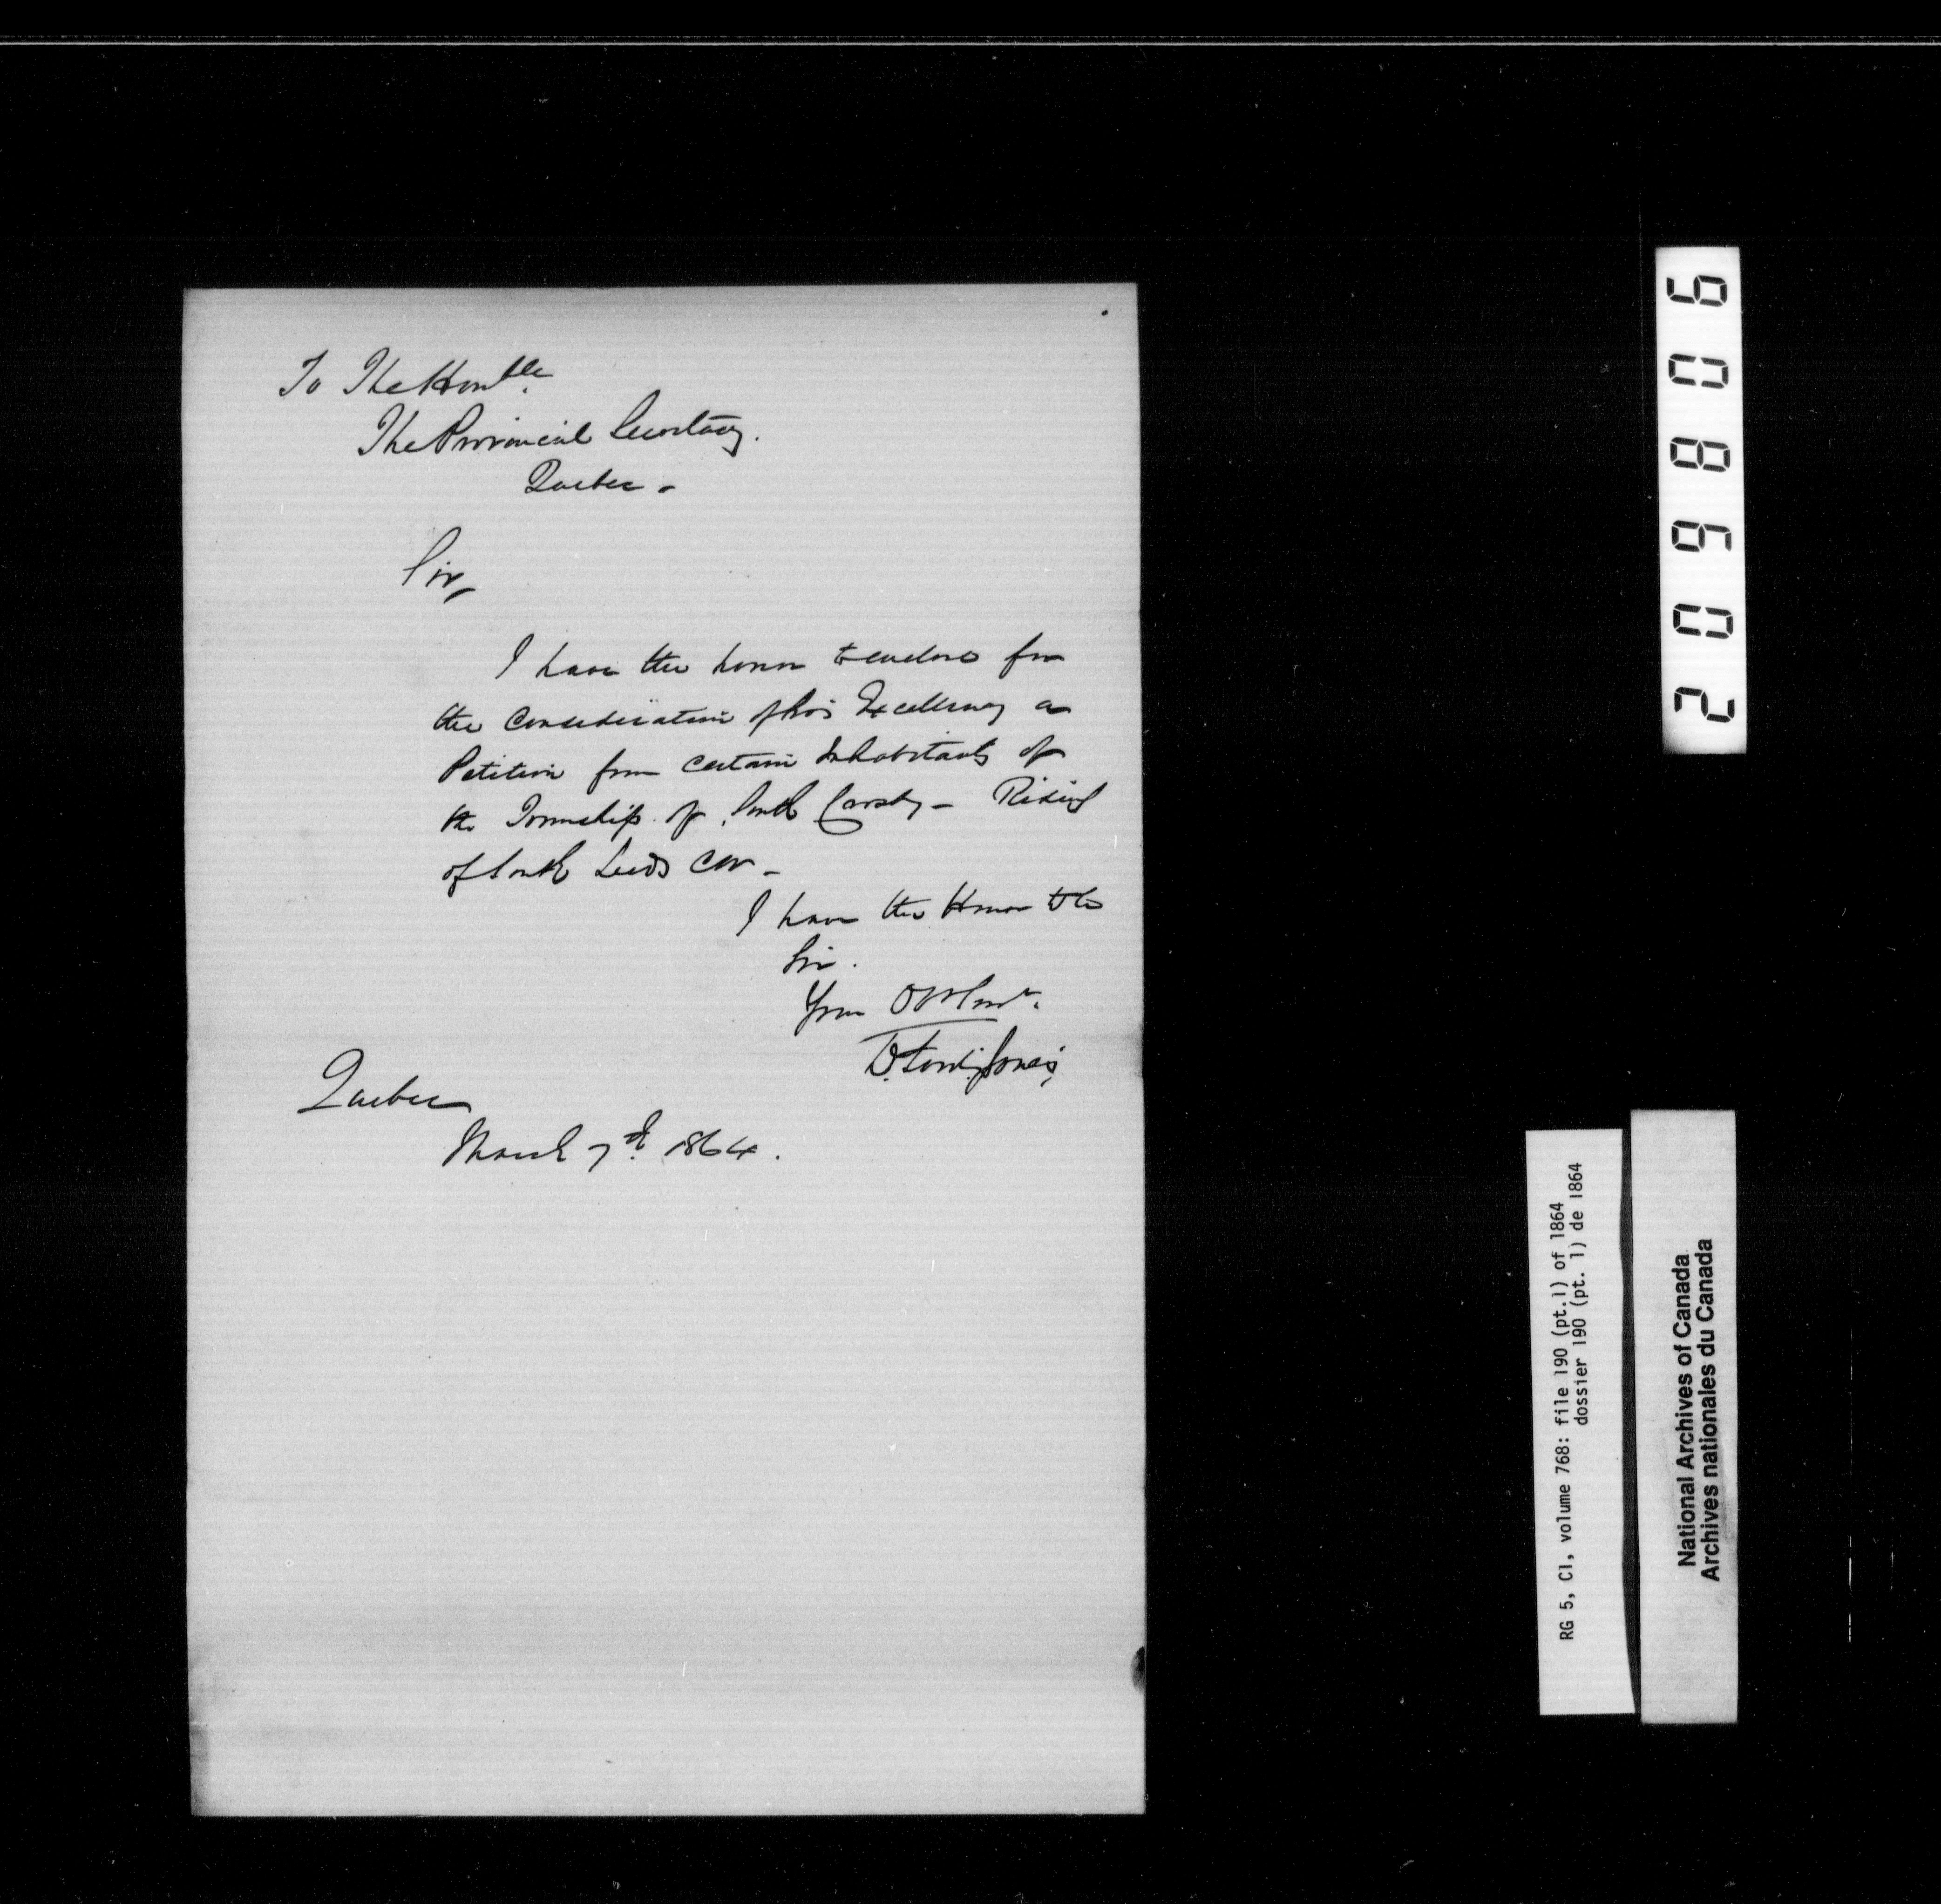 To The Honble
The Provincial Secretary.
Quebec -
Sir,
I have the honor to enclose for
the Consideration of his Excellency a
Petition from Certain Inhabitants of
the Township of South Crosby - Riding
of South Leeds CW -
I have the Honor to be
Sir.
Your Ob Servt.
D. Ford Jones,
Quebec
March 7th 1864.
209806
RG 5, C1, volume 768: file 190 (pt.1) of 1864
dossier 190 (pt. 1) de 1864
National Archives of Canada
Archives nationales du Canada